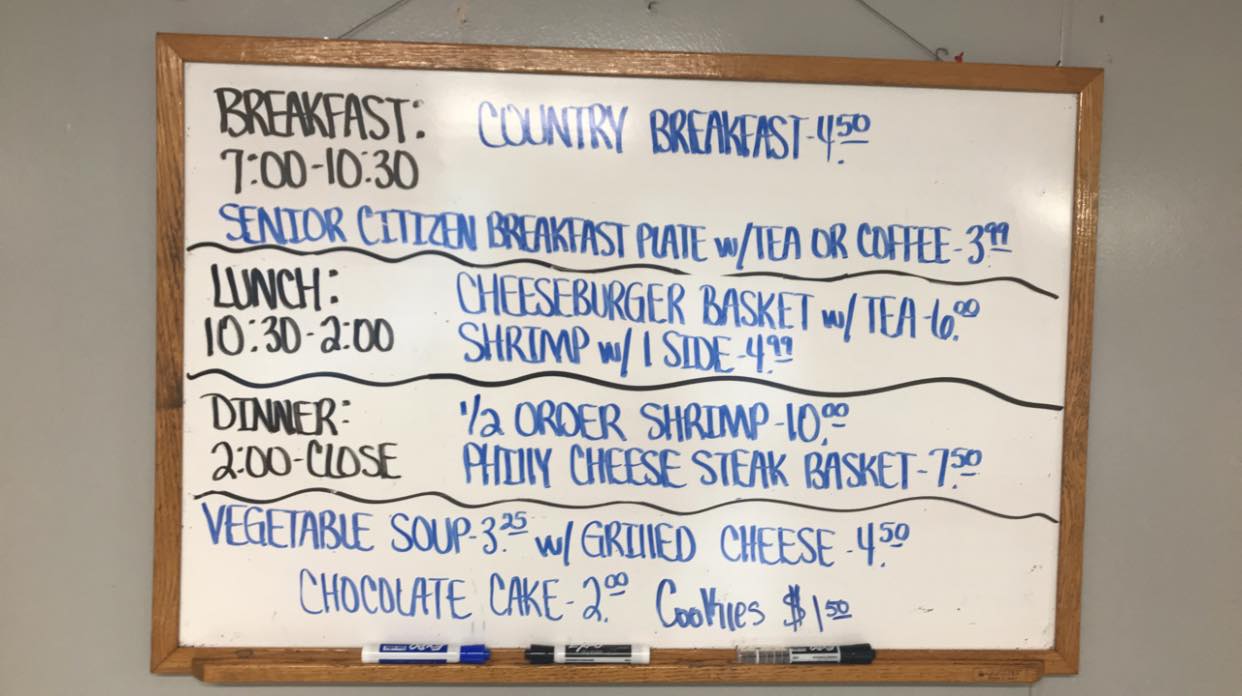 BREAKFAST: COUNTRY BREAKFAST-4.50
7:00-10:30
SENIOR CITIZEN BREAKFAST PLATE w/TEA OR COFFEE-3.99
LUNCH: CHEESEBURGER BASKET w/ TEA-6.00
10:30-2:00 SHRIMP w/ 1 SIDE-4.99
DINNER: 1/2 ORDER SHRIMP-10.00
2:00-CLOSE PHILLY CHEESE STEAK BASKET-7.50
VEGETABLE SOUP-3.25 w/ GRILLED CHEESE-4.50
CHOCOLATE CAKE-2.00 Cookies $1.50